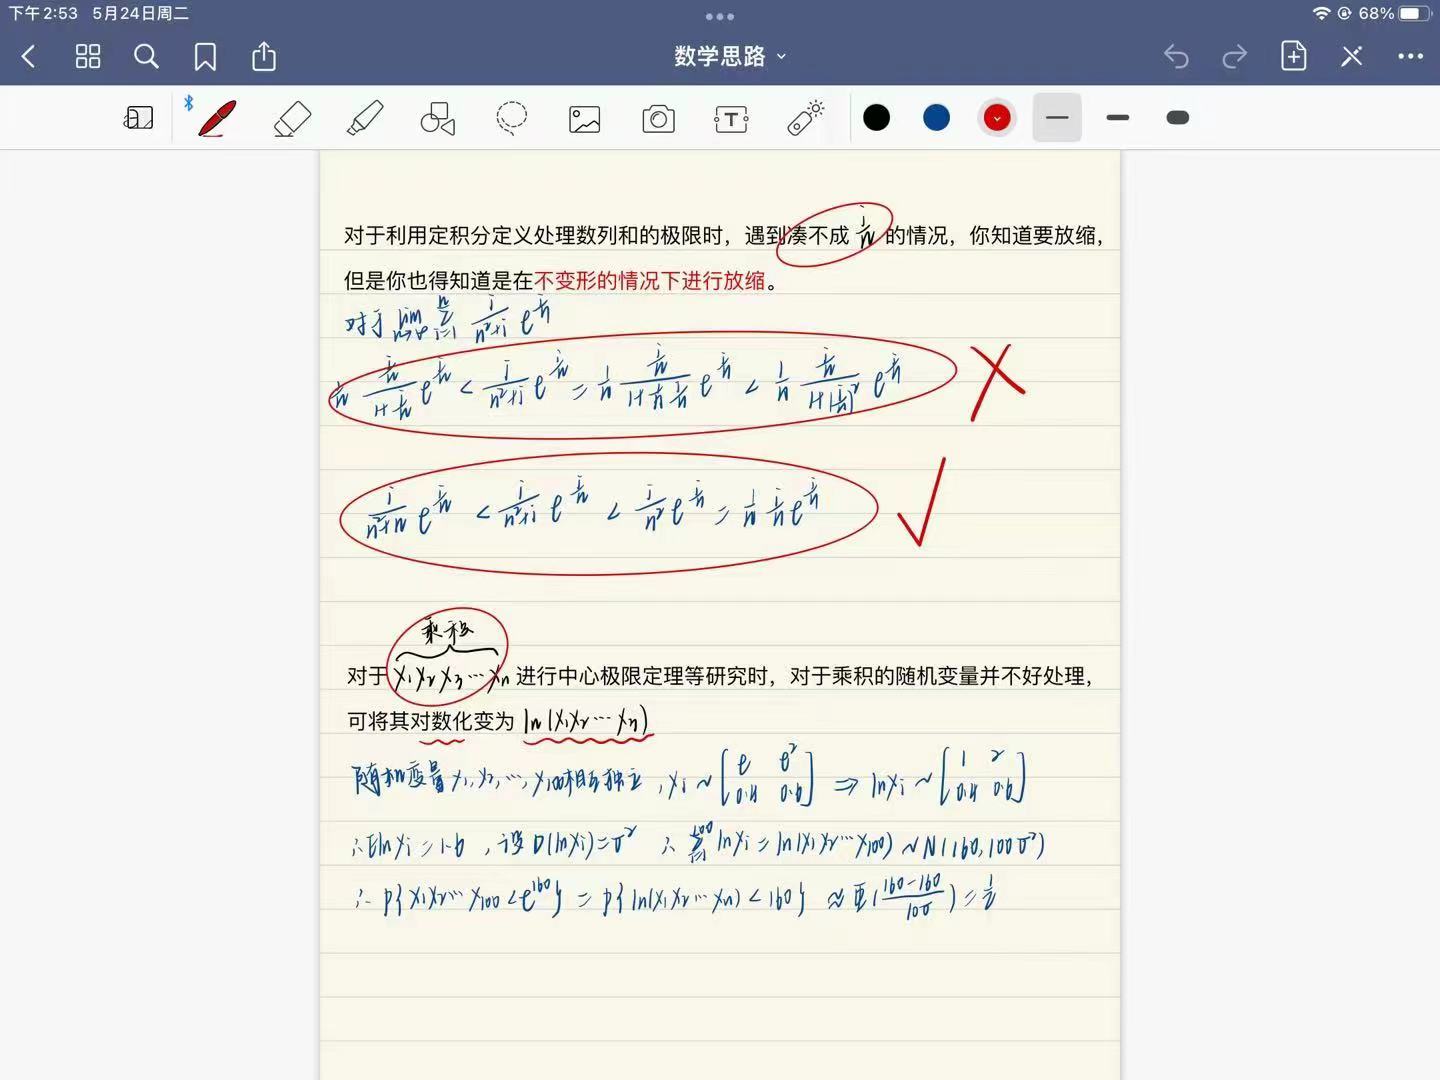 下午2:53 5月24日周二
68%
数学思路
对于利用定积分定义处理数列和的极限时，遇到凑不成 i/n 的情况，你知道要放缩，
但是你也得知道是在不变形的情况下进行放缩。
对于 lim n→∞ ∑ i=1 n i/(n²+i) e^(i/n)
1/n (i/n)/(1+i/n) e^(i/n) < i/(n²+i) e^(i/n) = 1/n (i/n)/(1+i/n 1/n) e^(i/n) < 1/n (i/n)/(1+(i/n)²) e^(i/n)
i/(n²+n) e^(i/n) < i/(n²+i) e^(i/n) < i/n² e^(i/n) = 1/n i/n e^(i/n)
乘积
对于 X₁X₂X₃…Xₙ 进行中心极限定理等研究时，对于乘积的随机变量并不好处理，
可将其对数化变为 ln(X₁X₂…Xₙ)
随机变量 X₁,X₂,…,X₁₀₀相互独立, Xᵢ ~ [e e² 0.4 0.6] ⇒ lnXᵢ ~ [1 2 0.4 0.6]
∴ElnXᵢ=1.6，设D(lnXᵢ)=σ² ∴ ∑ i=1 100 lnXᵢ = ln(X₁X₂…X₁₀₀) ~N(160,100σ²)
∴ P{X₁X₂…X₁₀₀<e^160} = P{ln(X₁X₂…Xₙ)<160} ≈ Φ((160-160)/10σ) = 1/2